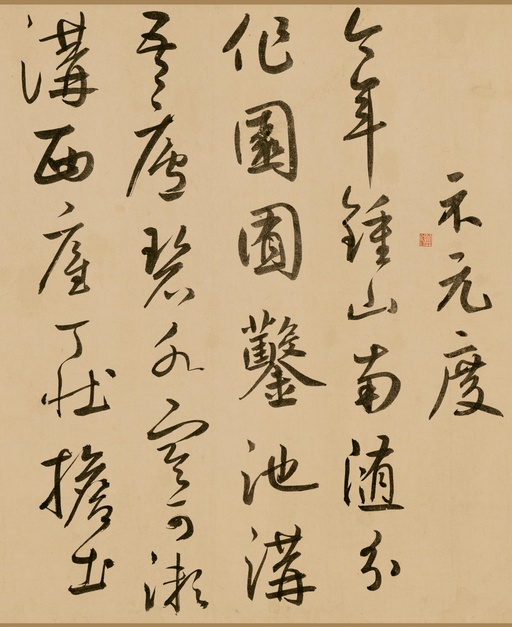 示元度
今年鍾山南随分
作園囿鑿池溝
吾廬碧水寒可漱
溝西雇丁壯擔土